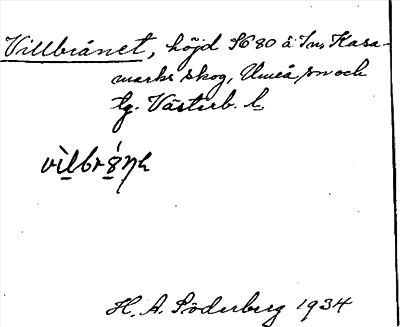 Villbrånet, höjd S680 å Ins Kasa-
marks skog, Umeå sn och
tg. Västerb. l.
H. A. Söderberg 1934